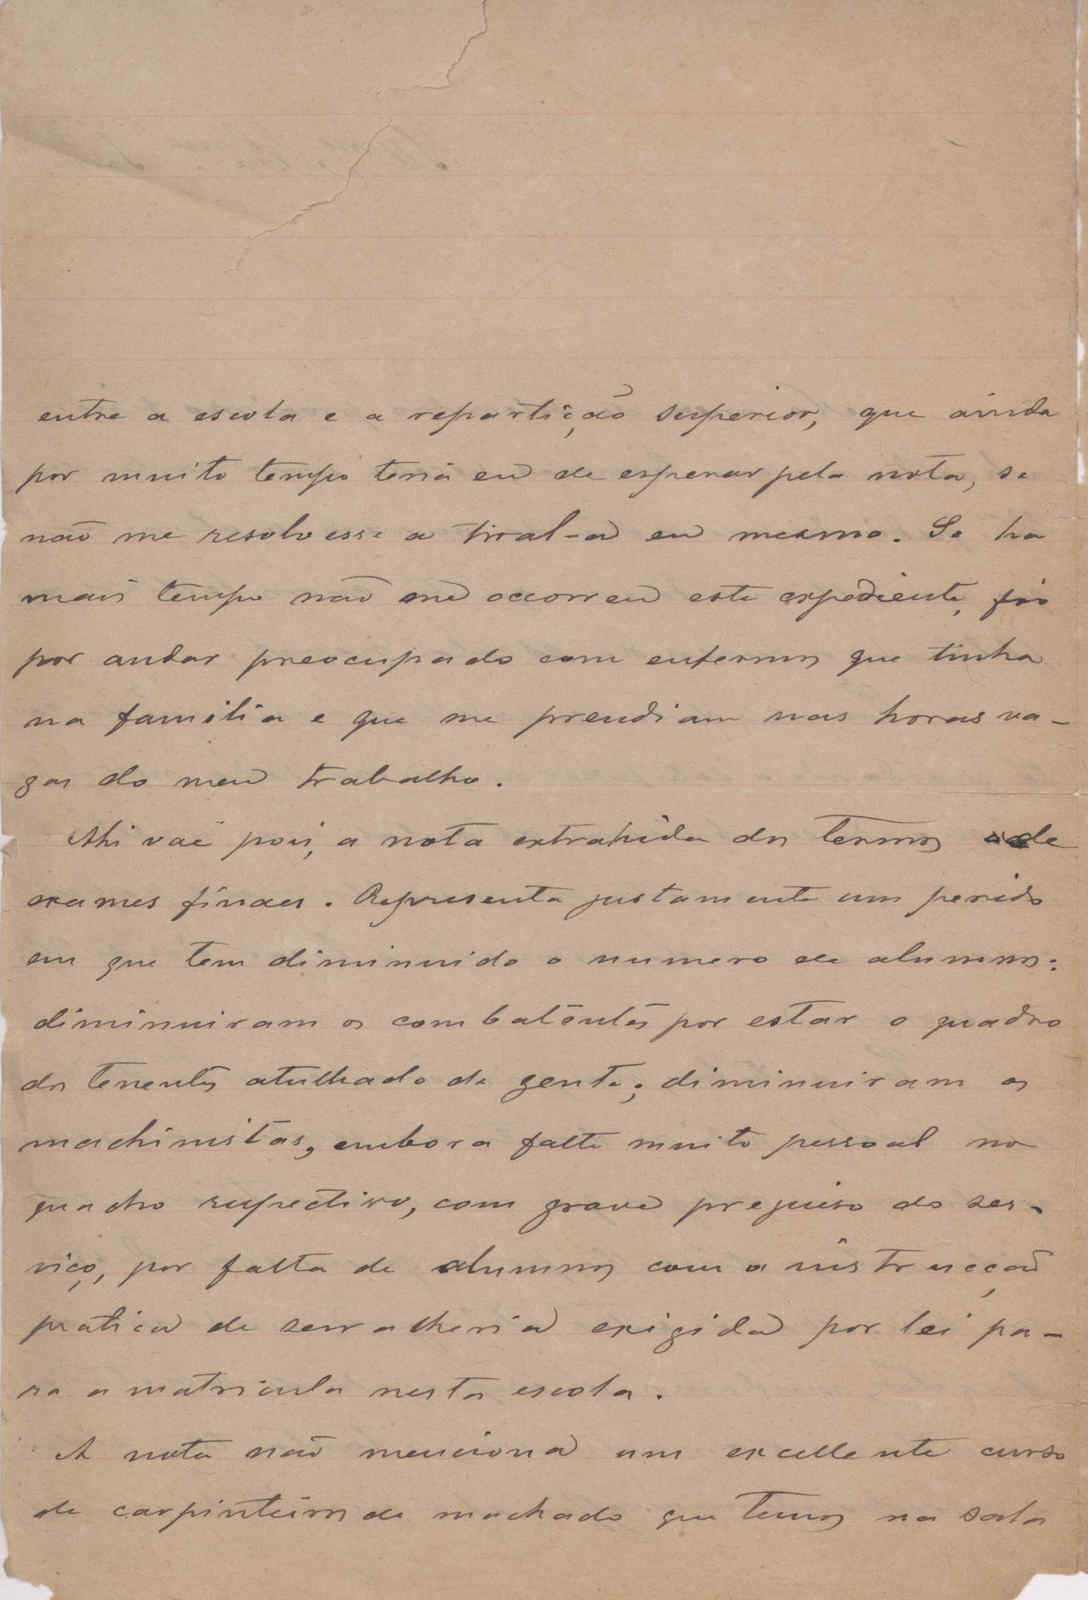 entre a escola e a repartição superior, que ainda
por muito tempo teria eu de esperar pela nota, se
não me resolvesse a tiral-a eu mesmo. Se ha
mais tempo não me occorreu este expediente, foi
por andar preocupado com enfermos que tinha
na familia e que me prendiam nas horas va-
gas do meu trabalho.
Ahi vae pois, a nota extrahida dos termos de
exames finaes. Representa justamente um periodo
em que tem diminuido o numero de alumnos:
diminuiram os combatentes por estar o quadro
dos tenentes atulhado de gente; diminuiram os
machinistas, embora falte muito pessoal no
quadro respectivo, com grave prejuiso do ser-
viço, por falta de alumnos com a instrucção
pratica de serralheria exigida por lei pa-
ra a matricula nesta escola.
A nota não menciona um excellente curso
de carpinteiros de machado que temos na sala